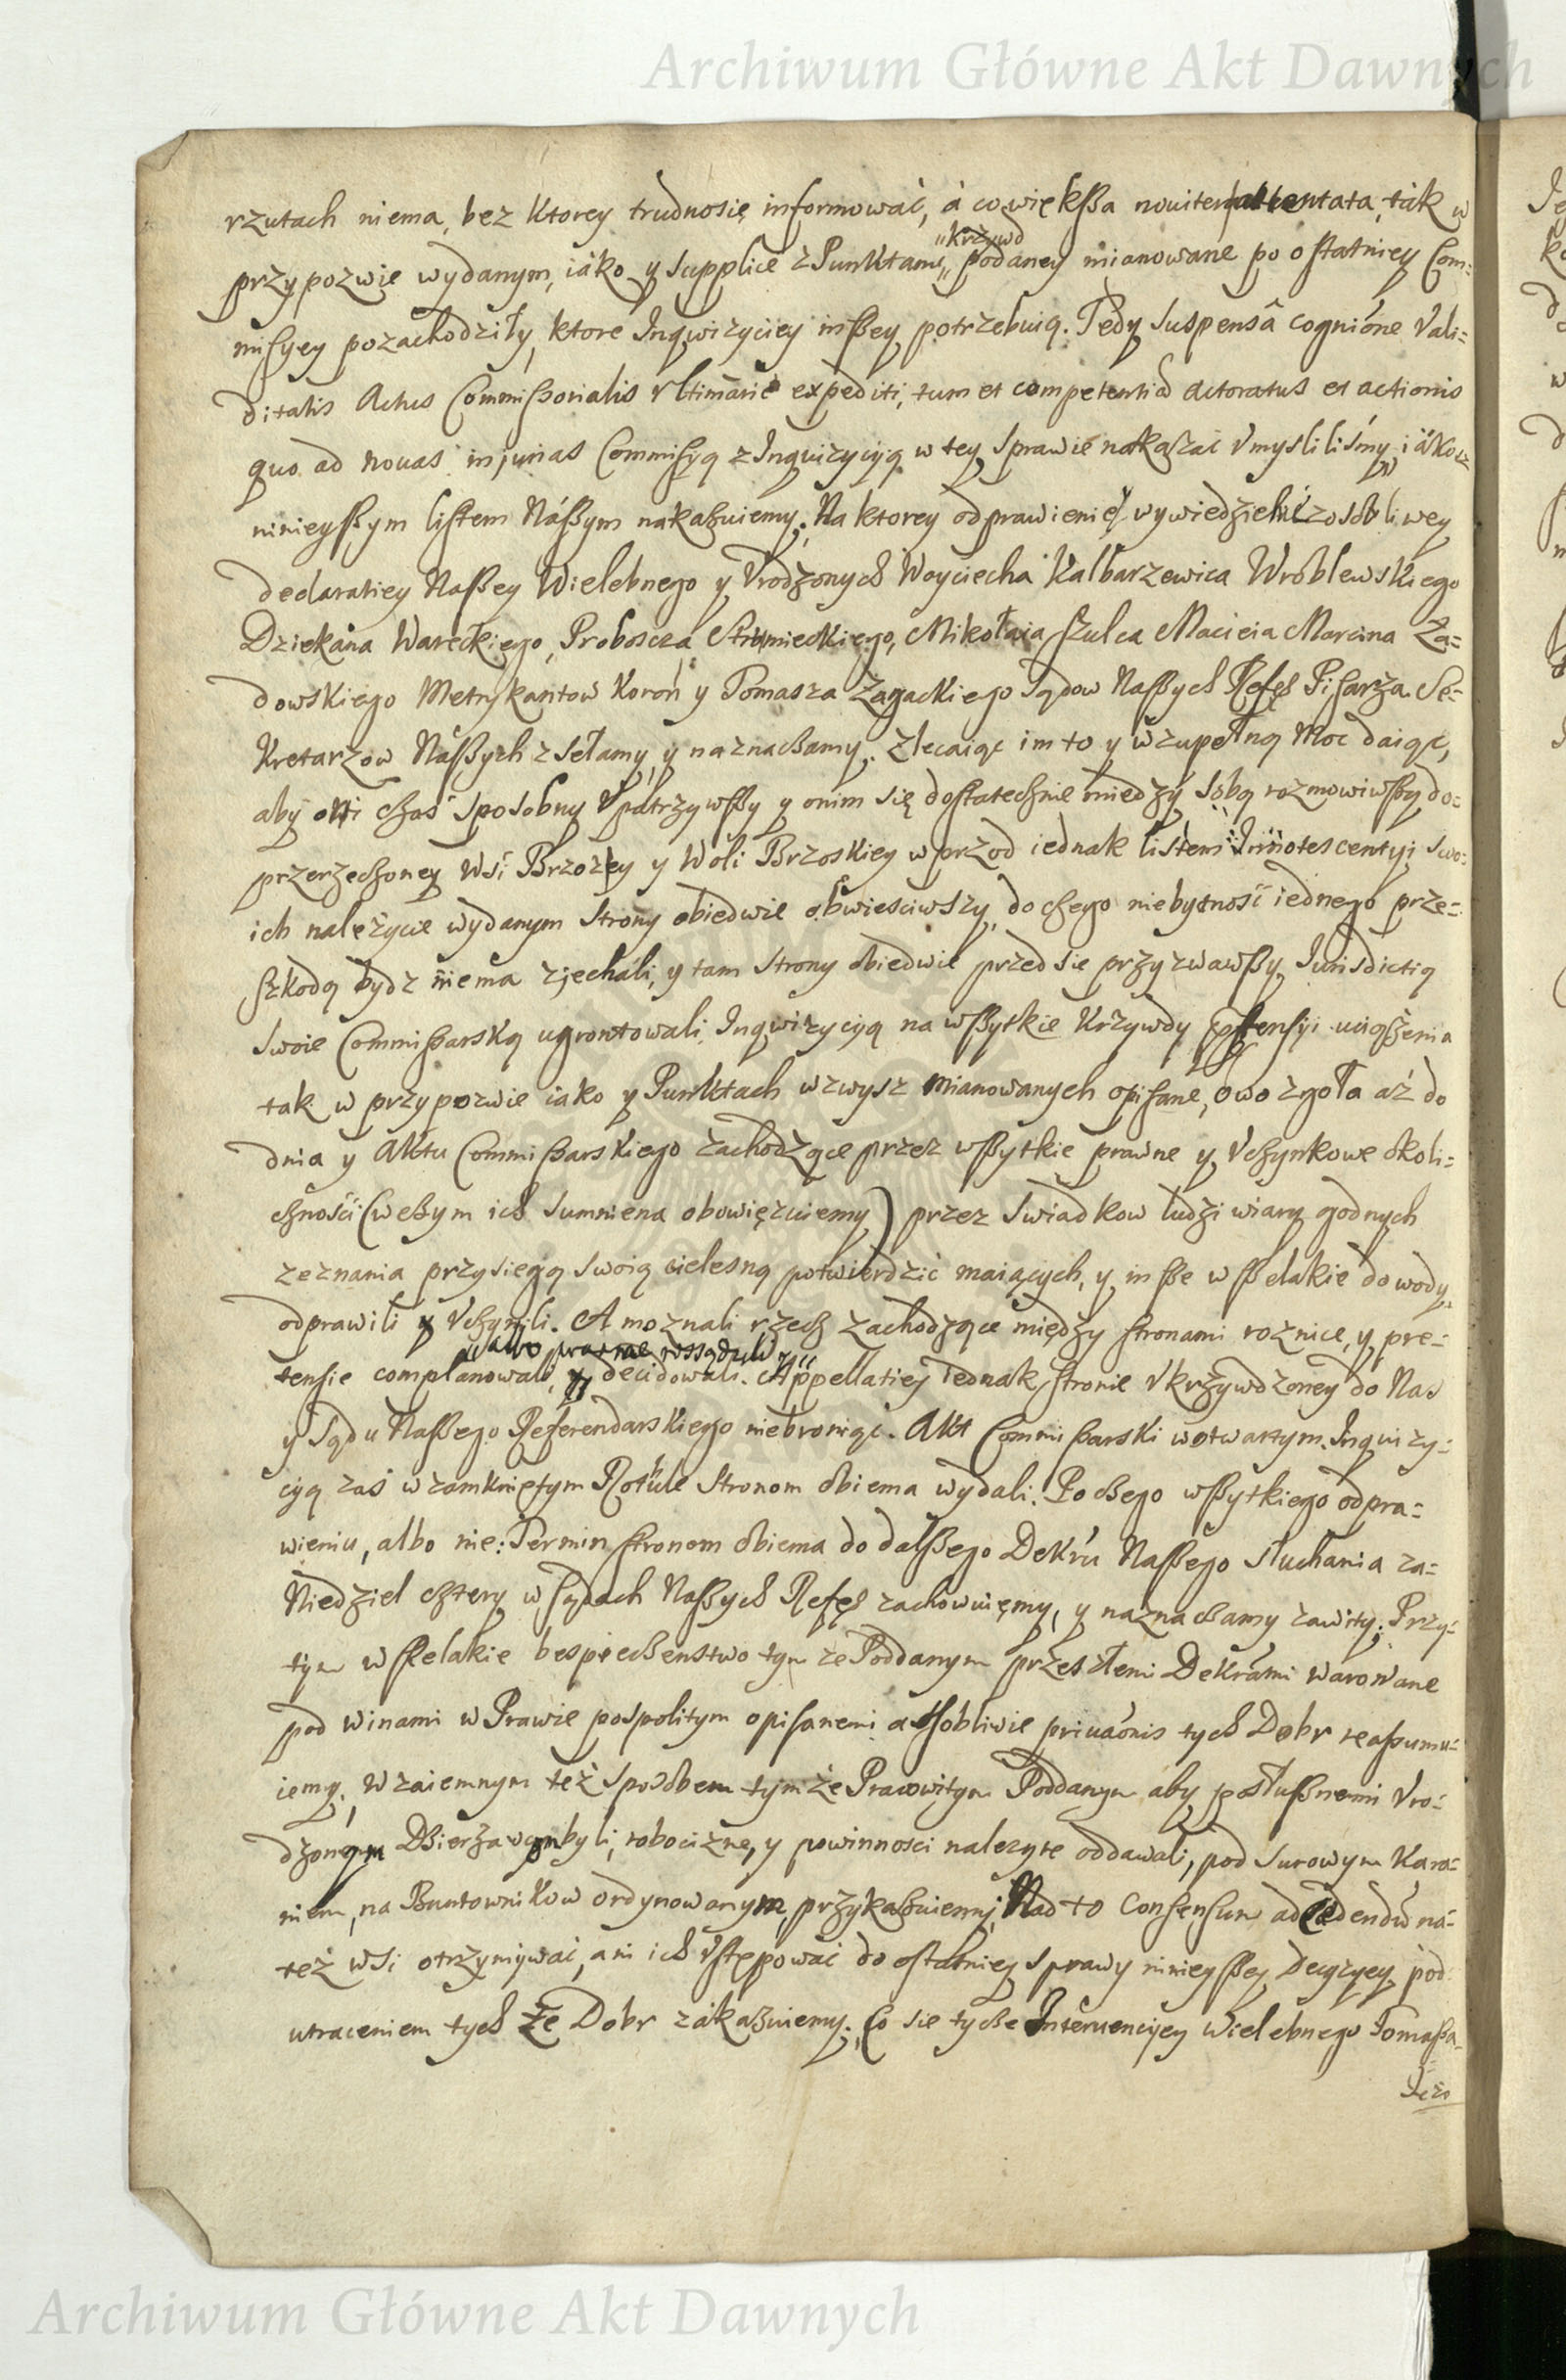 Archiwum Główne Akt Dawnych
rzutach niema, bez Ktorey trudnosię informować, á co większa noviter attentata, ták w
przypozwie wydanym, iáko y supplice z Punktami „Krzywd„ podaney mianowane po ostatniey Com:
missyey pozachodziły, ktore Inqwizyciey inszey potrzebuią. Tedy Suspensâ cognióne Vali=
ditatis Actus Commissorialis Vltimarié expediti, tum et competentiâ Actoratus et actionis
quo ad novas injurias Commissyą z Inquizycyą w tey sprawie nakazać Vmysliliśmy, iákosz
ninieyszym listem Nászym nakazuiemy. Na ktorey odprawienie y wywiedzienie zosobliwey
declaratiey Naszey Wielebnego y Vrodzonych Woyciecha Kalbarzewica Wróblewskiego
Dziekana Wareckiego, Proboscza Strumieckiego, Mikołaia Szulca Macieia Marcina Za=
dowskiego Metrykantow Koroń y Tomasza Zagackiego Sądow Naszych Refeŋ Pisarza Se=
Kretarzow Nászych zsełamy, y naznaczamy. Zlecaiąc im to y w zupełną Moc daiąc,
aby oni czas sposobny Vpatrzywszy y onim się dostatecznie między sobą rozmowiwszy do=
przerzeczoney Wsi Brzozey y Woli Brzoskiey wprzod iednak listem Innotescentyi swo:
ich należycie wydanym Strony obiedwie obwiesciwszy, do czego niebytność iednego prze=
szkodą bydz niema zjechali, y tam Strony obiedwie przed sie przyzwawszy Jurisdictią
Swoie Commissarską ugrontowali, Inqwizycyą na wszytkie Krzywdy pretensyi uciązenia
tak w przypozwie iako y Punktach wzwysz mianowanych opisane, owo zgoła aż do
dnia y Aktu Commissarskiego zachodzące przez wszytkie prawne y Vczynkowe okoli=
czności (wczym ich Sumniena obowięzuiemy) przez Swiadkow ludzi wiary godnych
zeznania przysięgą Swoią cielesną potwierdzić maiących, y insze wszelakie dowody
odprawili y Vczynili. A moznali rzecz zachodzące między stronami roznice, y pre=
tensie complanowali, „albo prawnie rossądzili„ y decidowali. Appellatiey iednak stronie Vkrzywdzoney do Nas
y Sądu Naszego Referendarskiego niebroniąc. Akt Commissarski wotwartym. Inquizy=
cyą zaś w zamkniętym Rotule Stronom obiema wydali. Po czego wszytkiego odpra=
wieniu, albo nie: Termin stronom obiema do dalszego Dekru Naszego słuchania za=
Niedziel cztery w sądach Naszych Refeŋ zachowuięmy, y naznaczamy zawity. Przy=
tym wszelakie bespieczenstwo tym ze Poddanym przeszłemi Dekrami warowane
pod winami w Prawie pospolitym opisanemi a osobliwie privaónis tych Dobr reassumu=
iemy. Wzaiemnym też sposobem tymże Pracowitym Poddanym aby posłusznemi Vro=
dzonym Dzierżawcom byli, robocizne, y powinnosci nalezyte oddawali, pod surowym Kara=
niem, na Buntownikow ordynowanym, przykazuiemy. Nad to Consensum ad cedendũ ná=
też wsi otrzymywać, ani ich Vstępować do ostatniey sprawy ninieyszey Decyzyey pod
utraceniem tych że Dobr zákazuiemy. Co sie tycze Intervencyey Wielebnego Tomasza
Archiwum Główne Akt Dawnych